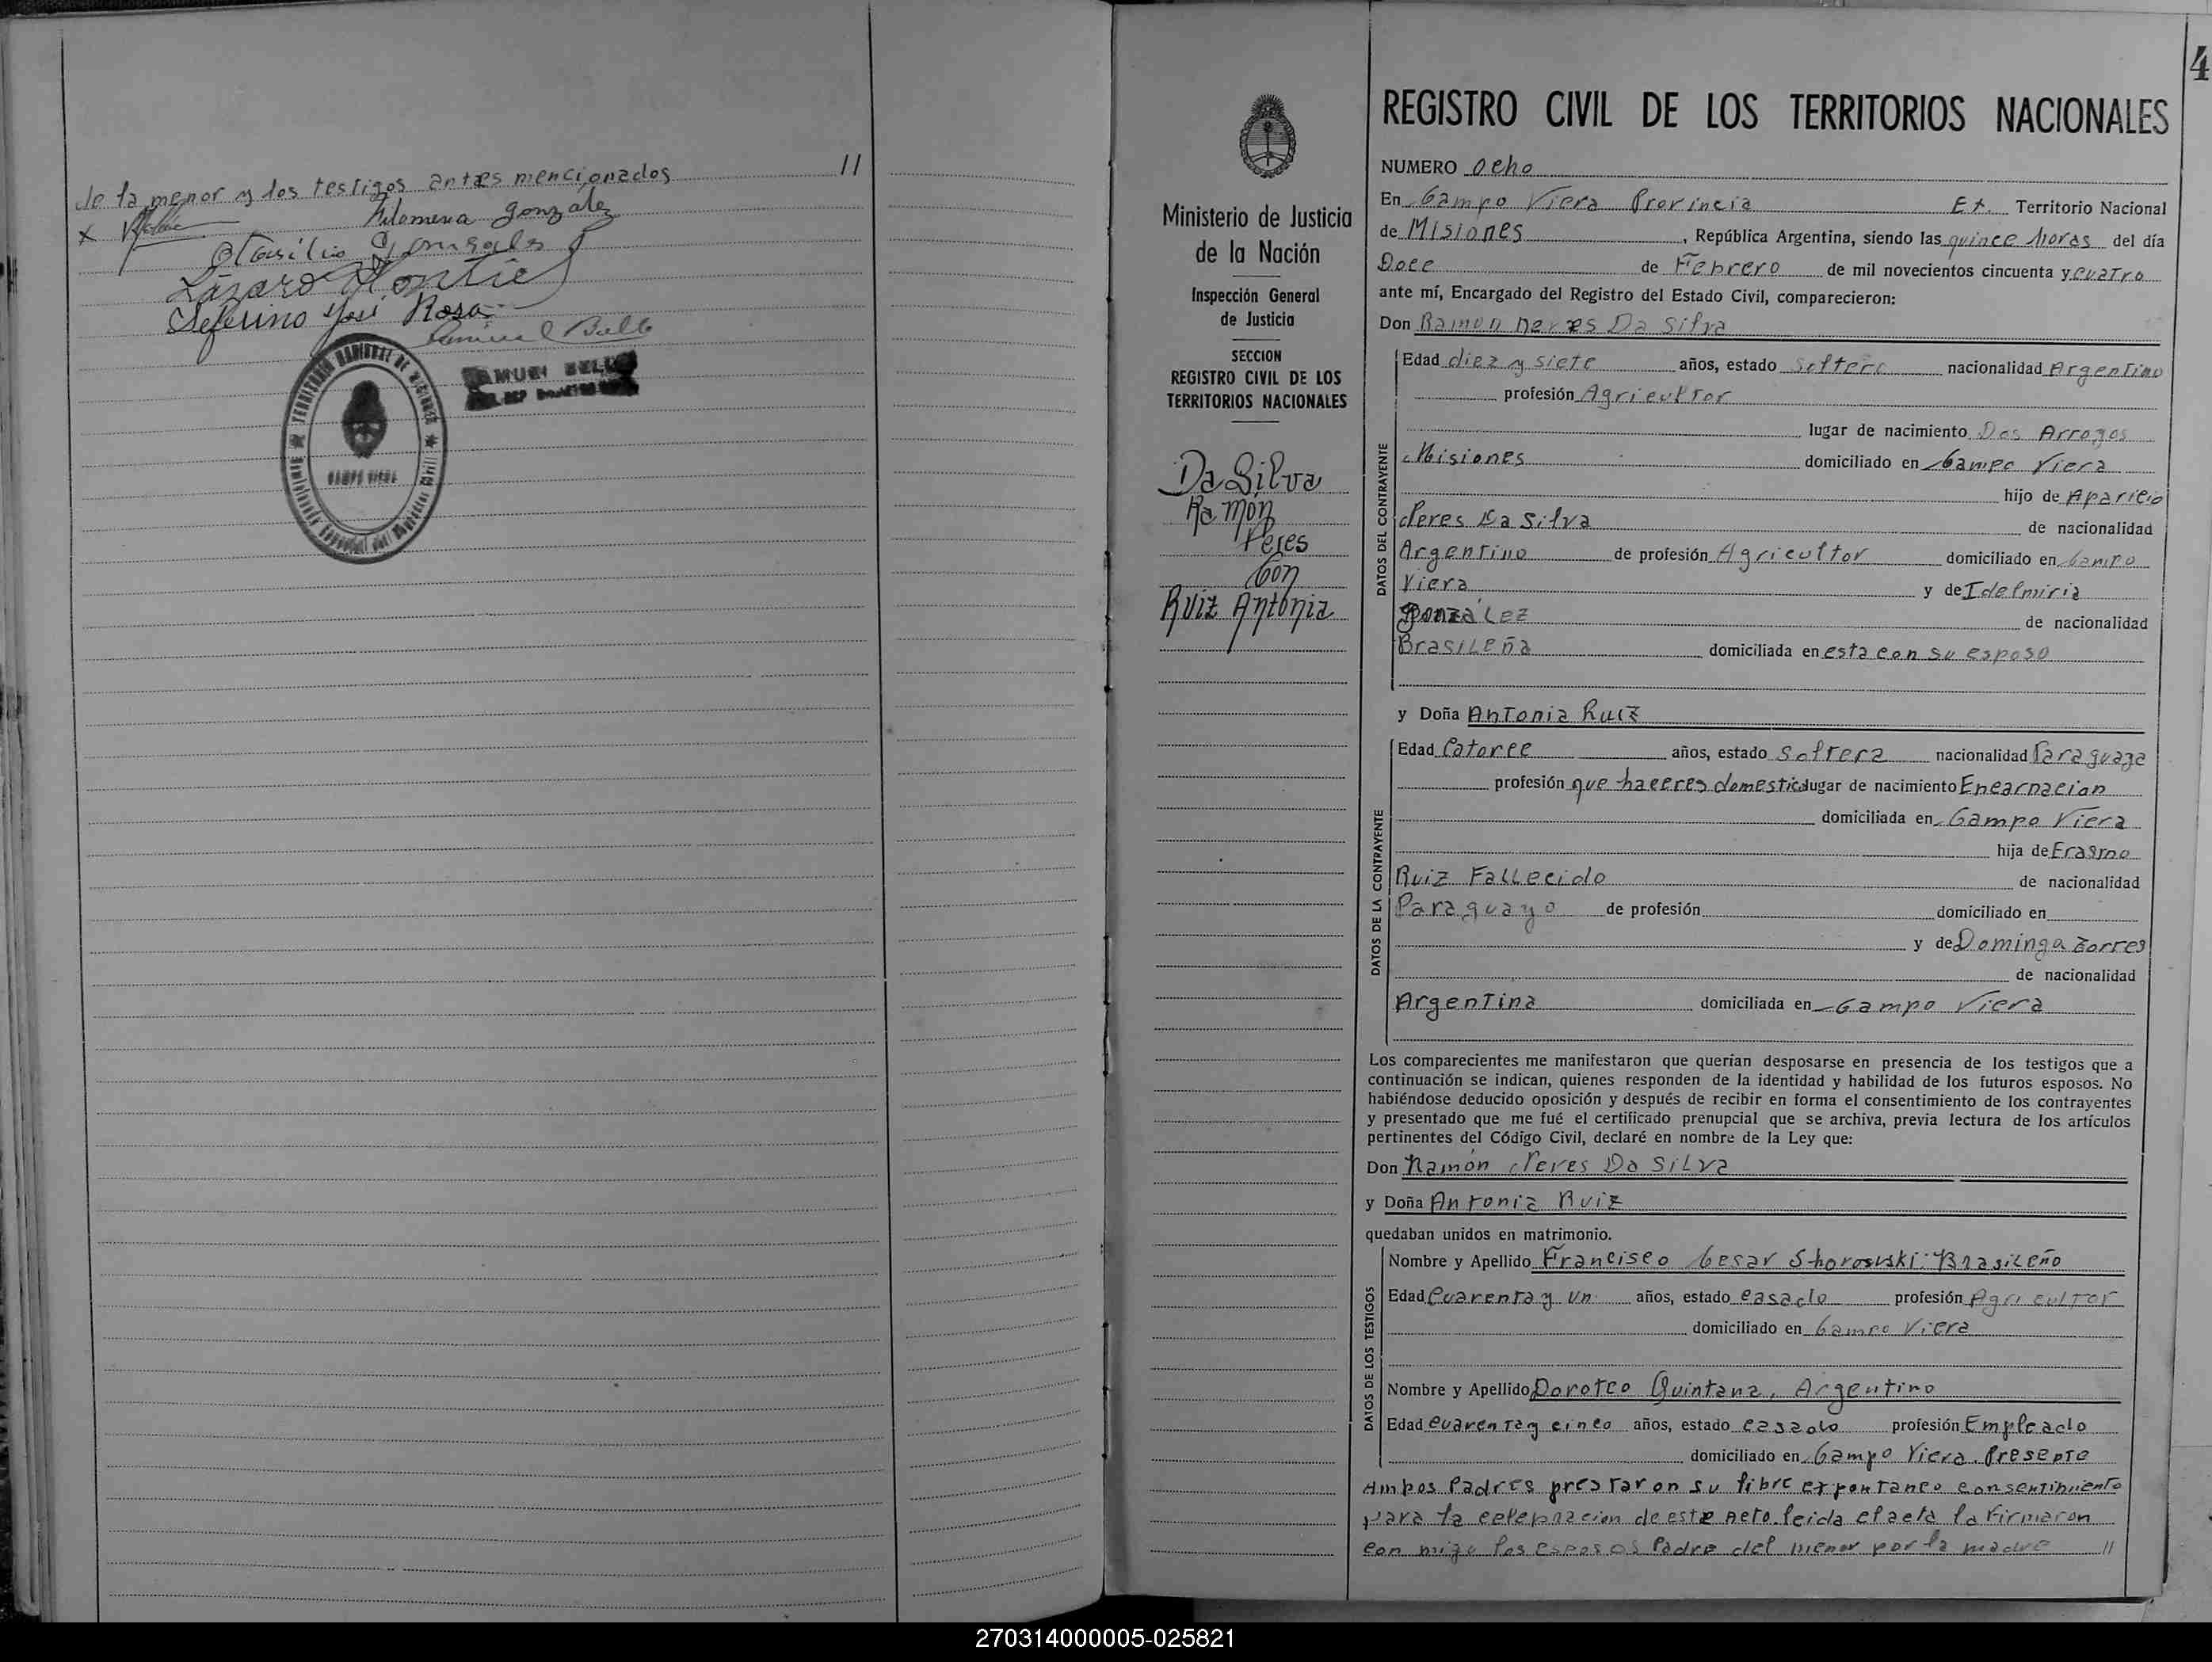 11
de la menor y los testigos antes mencionados
Filomena González
Lázaro
Seferino José Rosa
TERRITORIO NACIONAL DE MISIONES
CAMPO VIERA
4
REGISTRO CIVIL DE LOS TERRITORIOS NACIONALES
Ministerio de Justicia
de la Nación
Inspección General
de Justicia
SECCION
REGISTRO CIVIL DE LOS
TERRITORIOS NACIONALES
Da Silva
Ramón
Peres
Con
Ruiz Antonia
NUMERO ocho
En Campo Viera Provincia Ex. Territorio Nacional
de Misiones, República Argentina, siendo las quince horas del día
Doce de Febrero de mil novecientos cincuenta y cuatro
ante mí, Encargado del Registro del Estado Civil, comparecieron:
Don Ramon Peres Da Silva
DATOS DEL CONTRAYENTE
Edad diez y siete años, estado Soltero nacionalidad Argentino
profesión Agricultor
lugar de nacimiento Dos Arroyos
Misiones domiciliado en Campo Viera
hijo de Aparicio
Peres Da Silva de nacionalidad
Argentino de profesión Agricultor domiciliado en Campo
Viera y de Idelmiria
González de nacionalidad
Brasileña domiciliada en esta con su esposo
y Doña Antonia Ruiz
DATOS DE LA CONTRAYENTE
Edad Catorce años, estado Soltera nacionalidad Paraguaya
profesión que haceres domestico lugar de nacimiento Encarnacion
domiciliada en Campo Viera
hija de Erasmo
Ruiz Fallecido de nacionalidad
Paraguayo de profesión domiciliado en
y de Dominga Torres
de nacionalidad
Argentina domiciliada en Campo Viera
Los comparecientes me manifestaron que querían desposarse en presencia de los testigos que a
continuación se indican, quienes responden de la identidad y habilidad de los futuros esposos. No
habiéndose deducido oposición y después de recibir en forma el consentimiento de los contrayentes
y presentado que me fué el certificado prenupcial que se archiva, previa lectura de los artículos
pertinentes del Código Civil, declaré en nombre de la Ley que:
Don Ramón Peres Da Silva
y Doña Antonia Ruiz
quedaban unidos en matrimonio.
DATOS DE LOS TESTIGOS
Nombre y Apellido Francisco Cesar Skorowski Brasileño
Edad cuarenta y un años, estado casado profesión Agricultor
domiciliado en Campo Viera
Nombre y Apellido Doroteo Quintana, Argentino
Edad cuarenta y cinco años, estado casado profesión Empleado
domiciliado en Campo Viera. Presente
Ambos Padres prestaron su libre expontaneo consentimiento
para la celebracion de este Acto. leida el acta la firmaron
con migo los esposos Padre del menor por la madre //
270314000005-025821